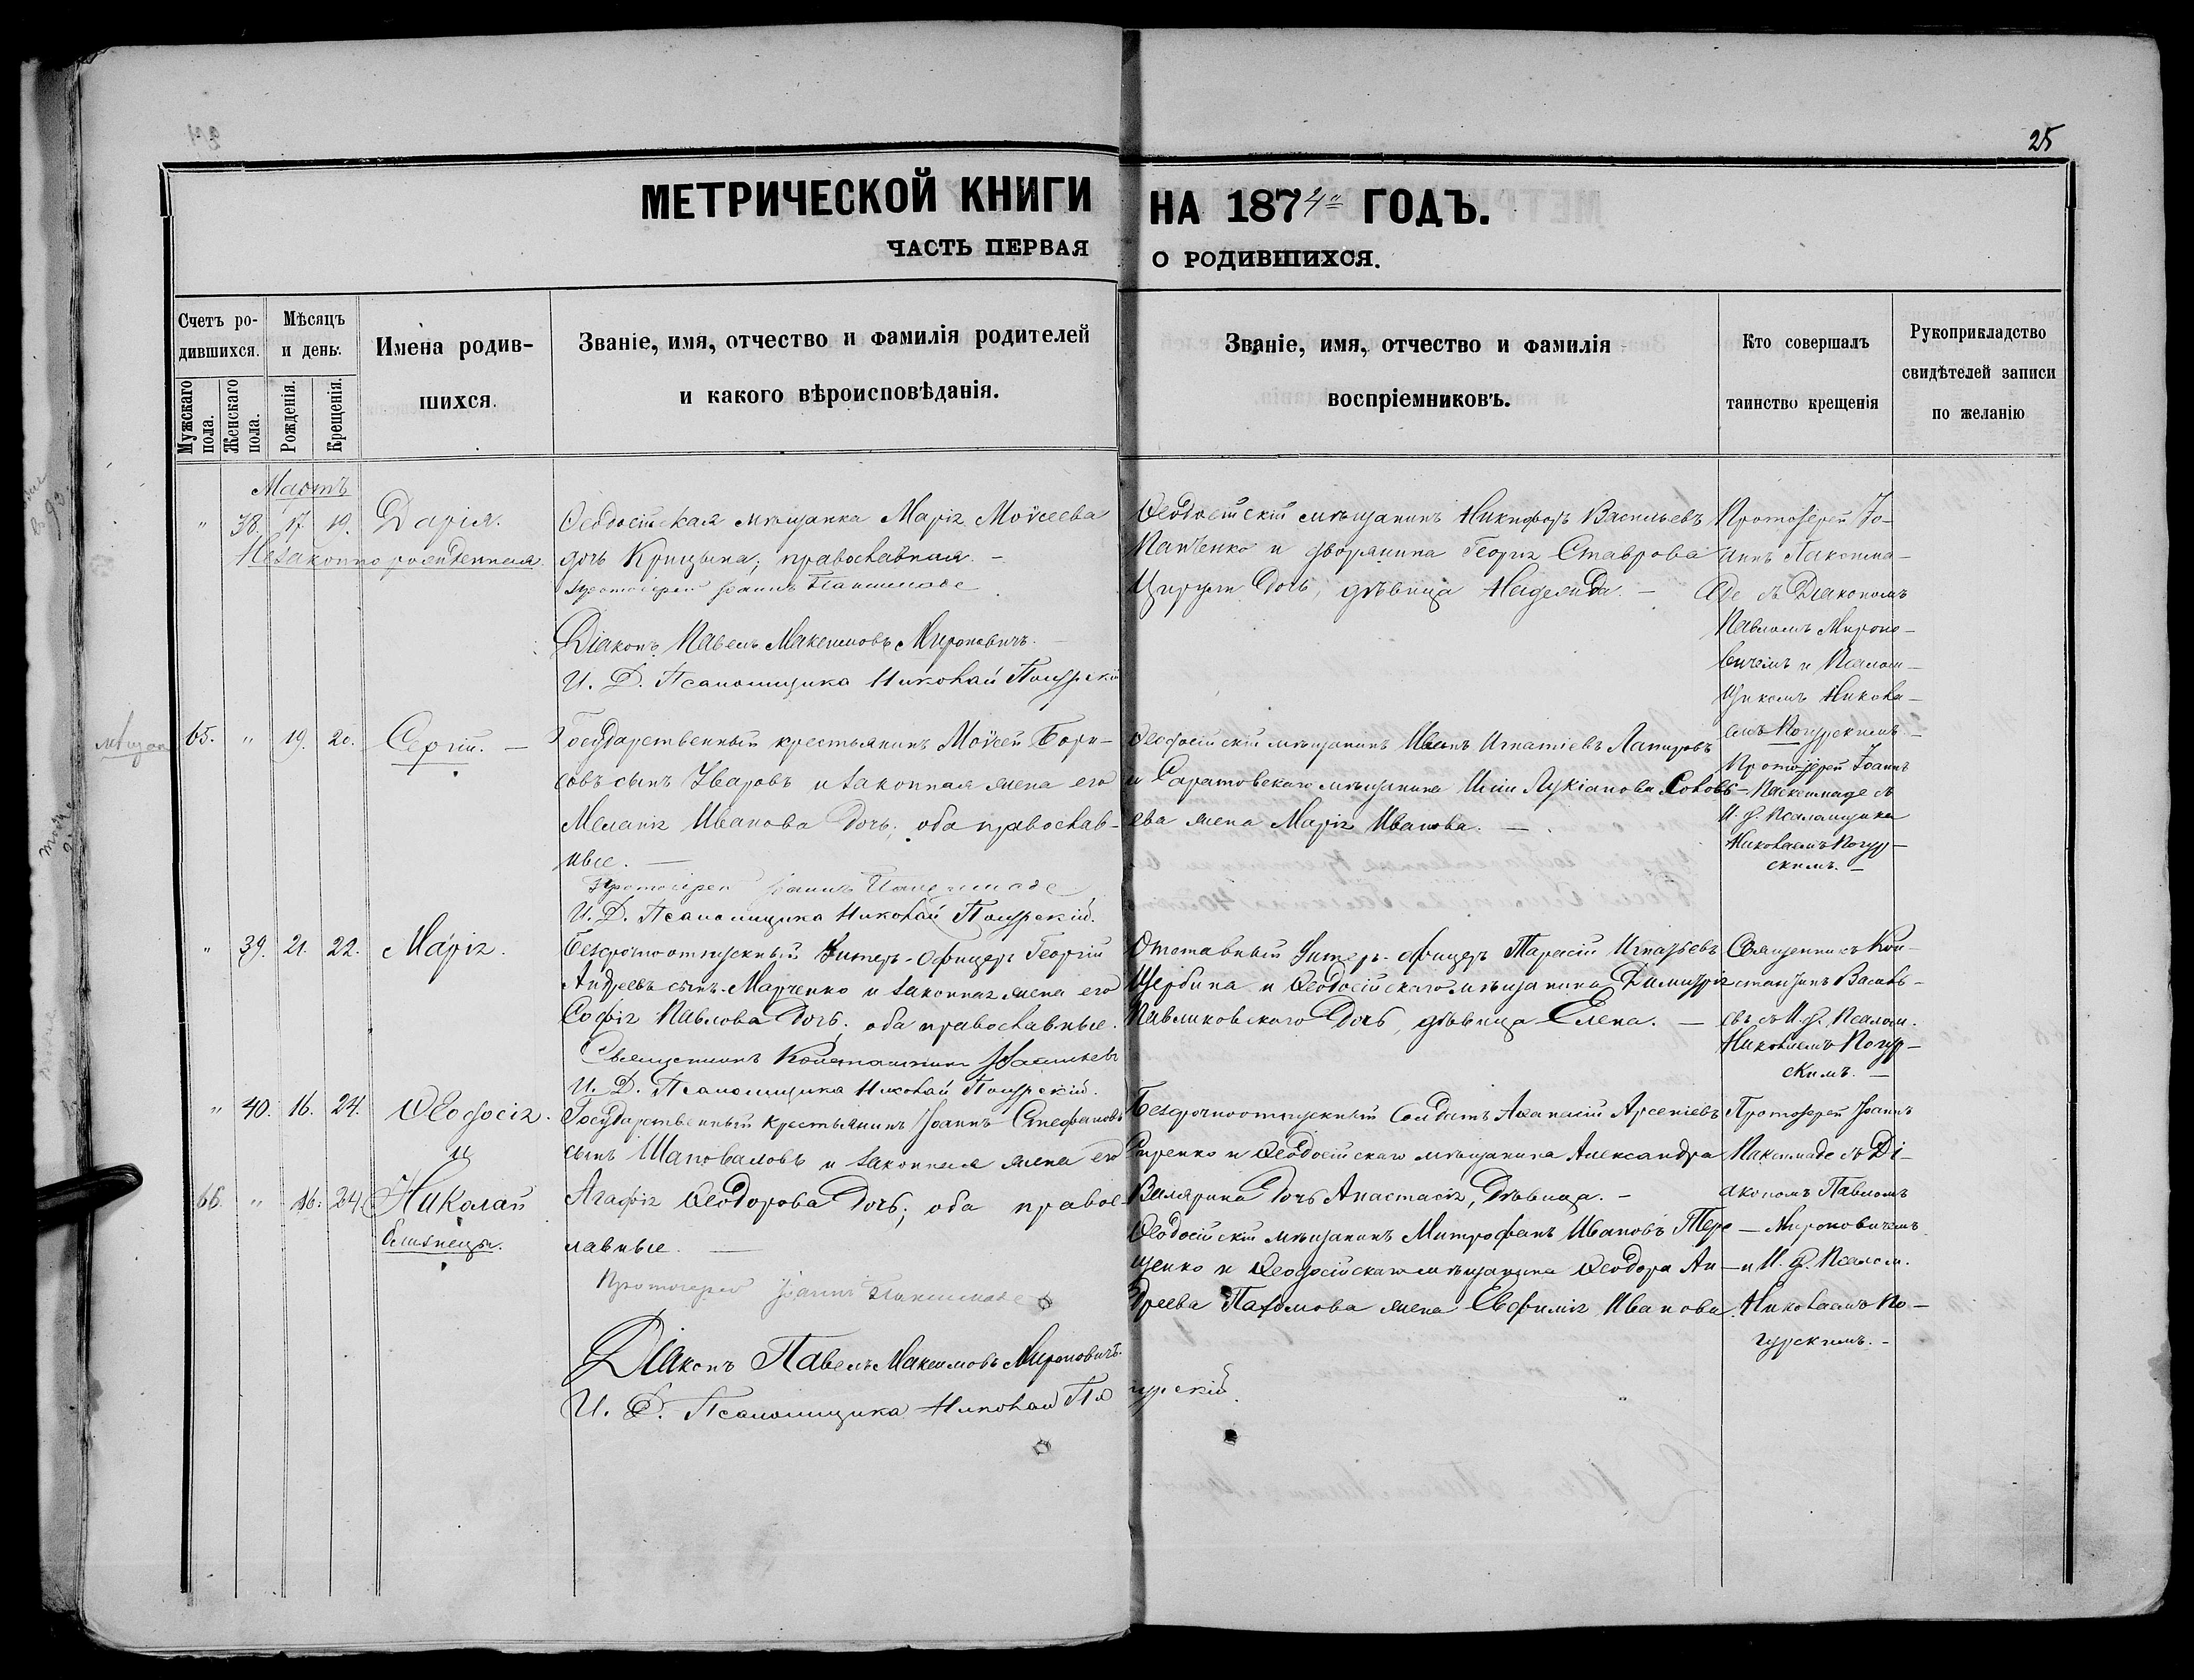 25
МЕТРИЧЕСКОЙ КНИГИ НА 1874й ГОДЪ.
ЧАСТЬ ПЕРВАЯ О РОДИВШИХСЯ.
Счетъ ро-
дившихся.
Мужскаго пола.
Женскаго пола.
Мѣсяцъ
и день.
Рожденія.
Крещенія.
Имена родив-
шихся.
Званіе, имя, отчество и фамилія родителей
и какого вѣроисповѣданія.
Званіе, имя, отчество и фамилія
воспріемниковъ.
Кто совершалъ
таинство крещенія
Рукоприкладство
свидѣтелей записи
по желанію
Мартъ
" 38. 17. 19. Дарія.
Незаконно рожденная.
Ѳеодосійская мѣщанка Марія Моѵсеева
дочь Крицына, православная. –
Протоіерей Іоаннъ
Діаконъ Павелъ Максимовъ Мироновичъ.
И. Д. Псаломщика Николай Погурскій
Ѳеодосійскій мѣщанинъ Никифоръ Васильевъ
Панченко и дворянина Георгія Ставрова
дочь, дѣвица
Протоіерей Іо-
аннъ
съ Діакономъ
Павломъ Мироно-
вичемъ и Псалом-
щикомъ Никола-
емъ Погурскимъ. –
65. " 19. 20. Сергій. –
Государственный крестьянинъ Моѵсей Бори-
совъ сынъ Уваровъ и законная жена его
Меланія Иванова дочь; оба православ-
ные. –
Протоіерей Іоаннъ
И. Д. Псаломщика Николай Погурскій.
Ѳеодосійскій мѣщанинъ Иванъ Игнатіевъ
и Саратовскаго мѣщанина Иліи Лукіанова Соловь-
ева жена Марія Иванова. –
Протоіерей Іоаннъ
съ
И. д. Псаломщика
Николаемъ Погур-
скимъ. –
" 39. 21. 22. Марія.
Безсрочноотпускный Унтеръ-Офицеръ Георгій
Андреевъ сынъ Марченко и законная жена его
Софія Павлова дочь; оба православные.
Священникъ Константинъ Васильевъ
И. Д. Псаломщика Николай Погурскій.
Отставный Унтеръ-Офицеръ Тарасій Игнатьевъ
Щербина и Ѳеодосійскаго мѣщанина Димитрія
Павликовскаго дочь, дѣвица Елена. –
Священникъ Кон-
стантинъ Василь-
евъ съ И. д. Псалом.
Николаемъ Погур-
скимъ. –
" 40. 16. 24. Ѳеодосія
и
66. " 16. 24. Николай
близнецы.
Государственный крестьянинъ Іоаннъ Стефановъ
сынъ Шаповаловъ и законная жена его
Агафія Ѳеодорова дочь; оба правос-
лавные. –
Протоіерей Іоаннъ
Діаконъ Павелъ Максимовъ Мироновичъ.
И. Д. Псаломщика Николай Погурскій.
Безсрочноотпускный Солдатъ Аѳанасій Арсеніевъ
и Ѳеодосійскаго мѣщанина Александра
дочь Анастасія, дѣвица. –
Ѳеодосійскій мѣщанинъ Митрофанъ Ивановъ Тере-
щенко и Ѳеодосійскаго мѣщанина Ѳеодора Ан-
дреева Пахомова жена Евфимія Иванова.
Протоіерей Іоаннъ
съ Ді-
акономъ Павломъ
Мироновичемъ
и И. д. Псалом.
Николаемъ По-
гурскимъ. –